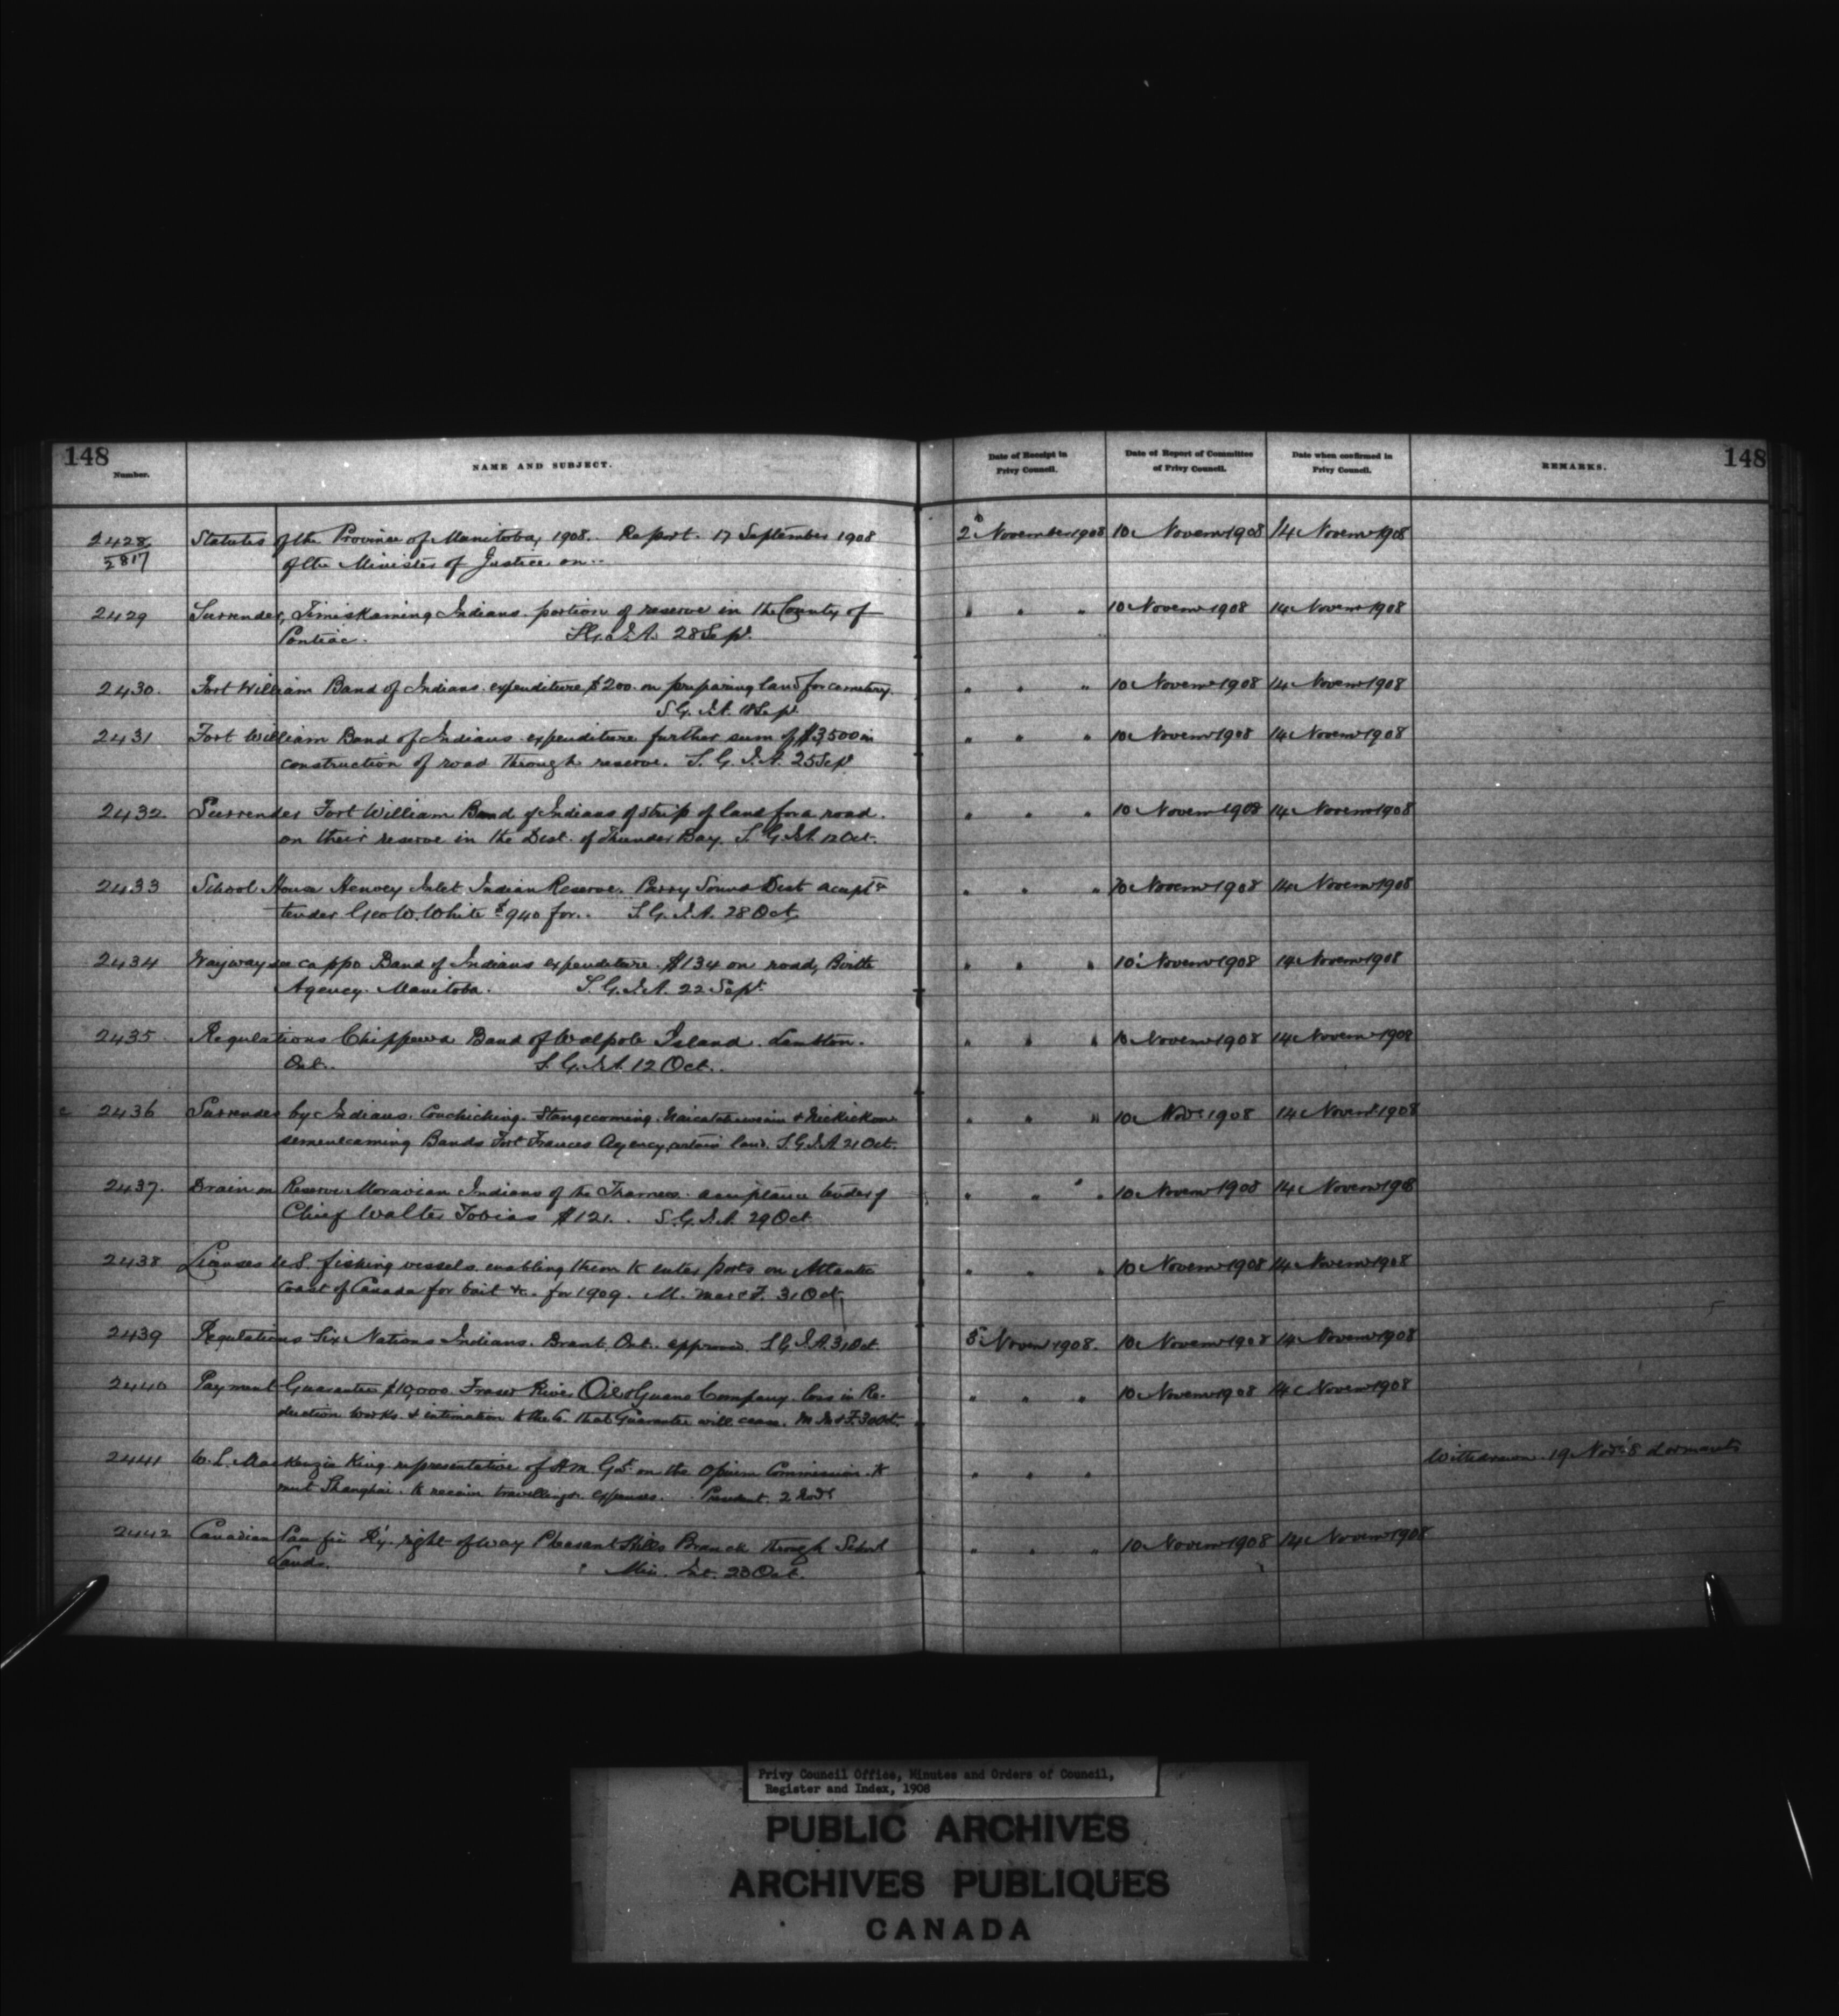 148
Number.
NAME AND SUBJECT.
Date of Receipt in Privy Council.
Date of Report of Committee of Privy Council.
Date when confirmed in Privy Council.
REMARKS.
148
2428 Statutes of the Province of Manitoba, 1908. Report. 17 September 1908 2 November 1908 10 Novemr 1908 14 Novemr 1908
2817 of the Minister of Justice on..
2429 Surrender, Timiskaming Indians. portion of reserve in the County of " " " 10 Novemr 1908 14 Novemr 1908
Pontiac. S.G.I.A. 28 Sept.
2430. Fort William Band of Indians. expenditure $200. on preparing land for cemetery. " " " 10 Novemr 1908 14 Novemr 1908
S.G. I.A. 18 Sept
2431 Fort William Band of Indians expenditure further sum of $3,500 in " " " 10 Novemr 1908 14 Novemr 1908
construction of road through reserve. S. G. I.A. 25 Sept
2432 Surrender Fort William Band of Indians of strip of land for a road. " " " 10 Novemr 1908 14 Novemr 1908
on their reserve in the Dist. of Thunder Bay. S. G. I.A. 12 Oct.
2433 School House Henvey Inlet Indian Reserve. Parry Sound Dist accept'ce " " " 10 Novemr 1908 14 Novemr 1908
tender Geo W. White $940 for.. S.G. I.A. 28 Oct.
2434 Waywayseecappo Band of Indians expenditure. $134 on road, Birtle " " " 10 Novemr 1908 14 Novemr 1908
Agency. Manitoba. S.G.I.A. 22 Sept.
2435 Regulations Chippewa Band of Walpole Island. Lambton. " " " 10 Novemr 1908 14 Novemr 1908
Ont.. S.G.I.A. 12 Oct..
2436 Surrender by Indians. Couchiching. Stangecoming. & Nickickou- " " " 10 Novr 1908 14 Novemr 1908
semenecaming Bands Fort Frances Agency, certain land. S.G.I.A 21 Oct.
2437. Drain on Reserve Moravian Indians of the Thames. acceptance tender of " " " 10 Novemr 1908 14 Novemr 1908
Chief Walter Tobias $121. . S.G.I.A. 29 Oct.
2438 Licenses U.S. fishing vessels. enabling them to enter ports on Atlantic " " " 10 Novemr 1908 14 Novemr 1908
Coast of Canada for bait &c. for 1909. M. Mar & F. 31 Oct.
2439 Regulations Six Nations Indians. Brant, Ont. approved. S G I.A. 31 Oct. 5 Novemr 1908. 10 Novemr 1908 14 Novemr 1908
2440 Payment Guarantee $10,000. Fraser River Oil & Guano Company. loss in Re- " " " 10 Novemr 1908 14 Novemr 1908
duction Works. & intimation to the Co. that Guarantee will cease. M. M & F. 30 Oct.
2441 W. L. Mackenzie King. representative of H.M. Govt. on the Opium Commission. to " " " Withdrawn. 19 Novr. 8 dormants
meet Shanghai. to receive travelling expenses. President. 2 Novr
2442 Canadian Pacific Ry. right of way Pleasant Hills Branch through School " " " 10 Novemr 1908 14 Novemr 1908
Lands. Min. Int. 28 Oct.
Privy Council Office, Minutes and Orders of Council,
Register and Index, 1908
PUBLIC ARCHIVES
ARCHIVES PUBLIQUES
CANADA